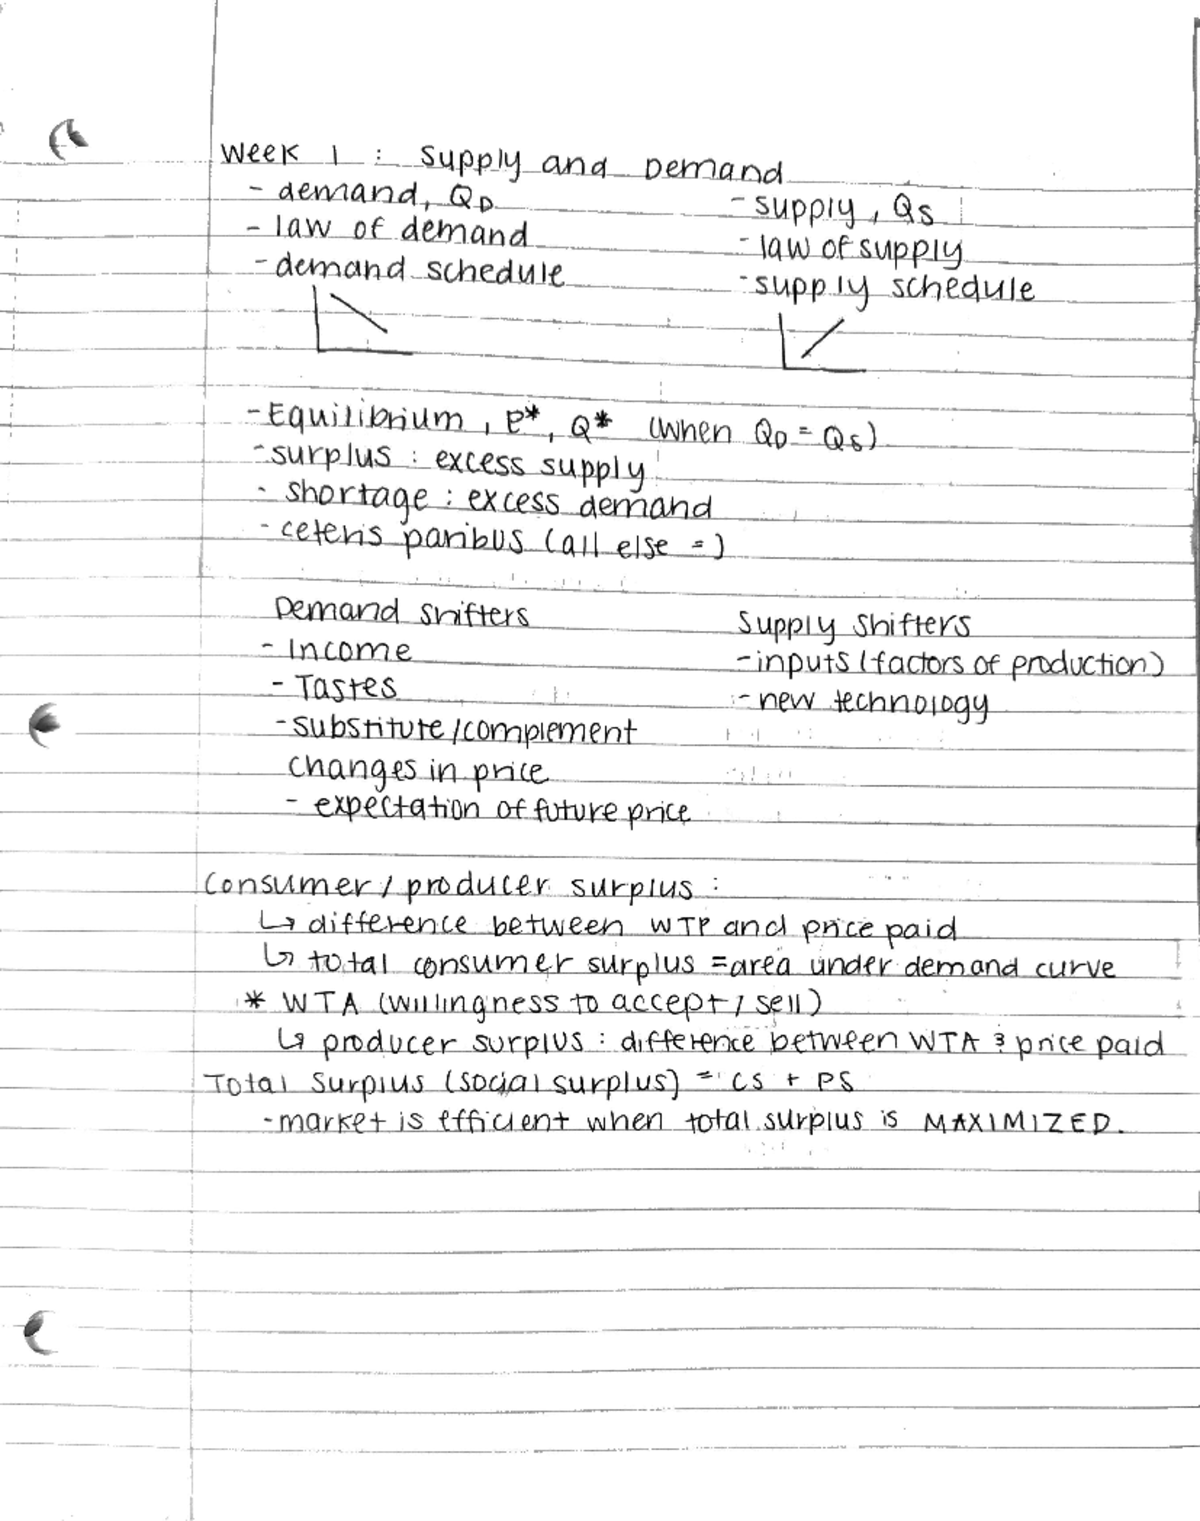 Week 1 : Supply and Demand
- demand, QD
- law of demand
- demand schedule
- supply, Qs
- law of supply
- supply schedule
- Equilibrium, P*, Q* (when QD = Qs)
- surplus : excess supply
- shortage : excess demand
- ceteris paribus (all else =)
Demand Shifters
- Income
- Tastes
- substitute/complement
changes in price
- expectation of future price
Supply Shifters
- inputs (factors of production)
- new technology
Consumer/producer surplus :
↳ difference between WTP and price paid
↳ total consumer surplus = area under demand curve
* WTA (willingness to accept/sell)
↳ producer surplus : difference between WTA & price paid
Total Surplus (social surplus) = CS + PS
- market is efficient when total surplus is MAXIMIZED.